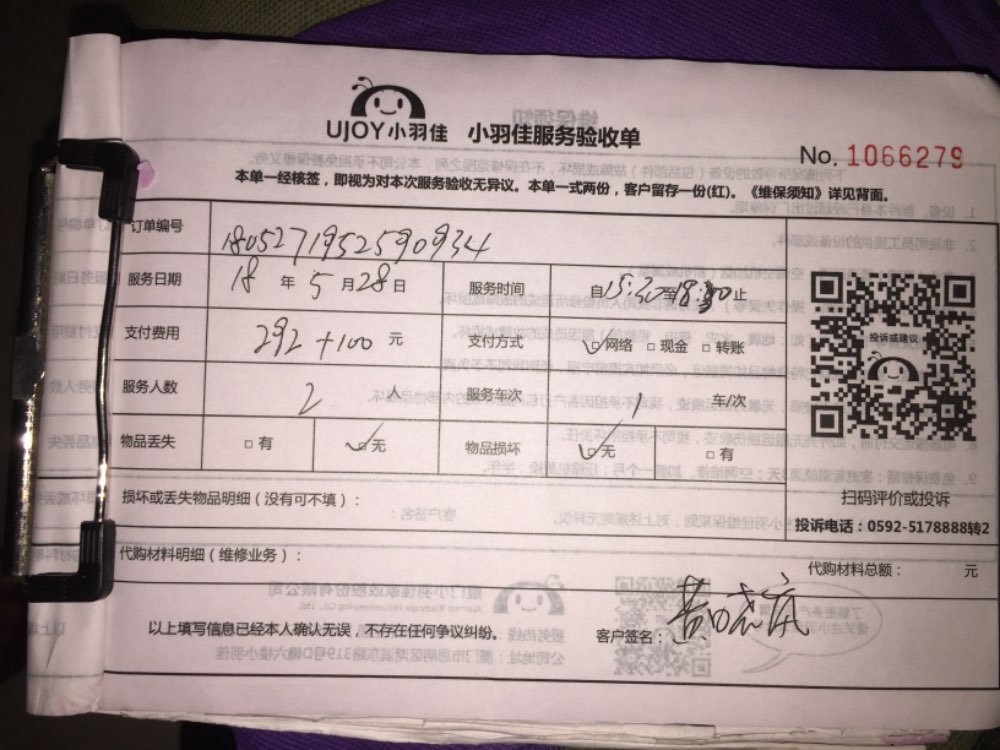 UJOY小羽佳 小羽佳服务验收单
No. 1066279
本单一经核签，即视为对本次服务验收无异议。本单一式两份，客户留存一份(红)。《维保须知》详见背面。
订单编号 1805271952590934
服务日期 18 年 5 月 28 日 服务时间 自 15:30 至 18:30 止
支付费用 292+100 元 支付方式 ☑网络 □现金 □转账
服务人数 2 人 服务车次 1 车/次
物品丢失 □有 ☑无 物品损坏 ☑无 □有
投诉或建议
扫码评价或投诉
投诉电话：0592-5178888转2
损坏或丢失物品明细（没有可不填）：
代购材料明细（维修业务）：
代购材料总额： 元
以上填写信息已经本人确认无误，不存在任何争议纠纷。
客户签名：